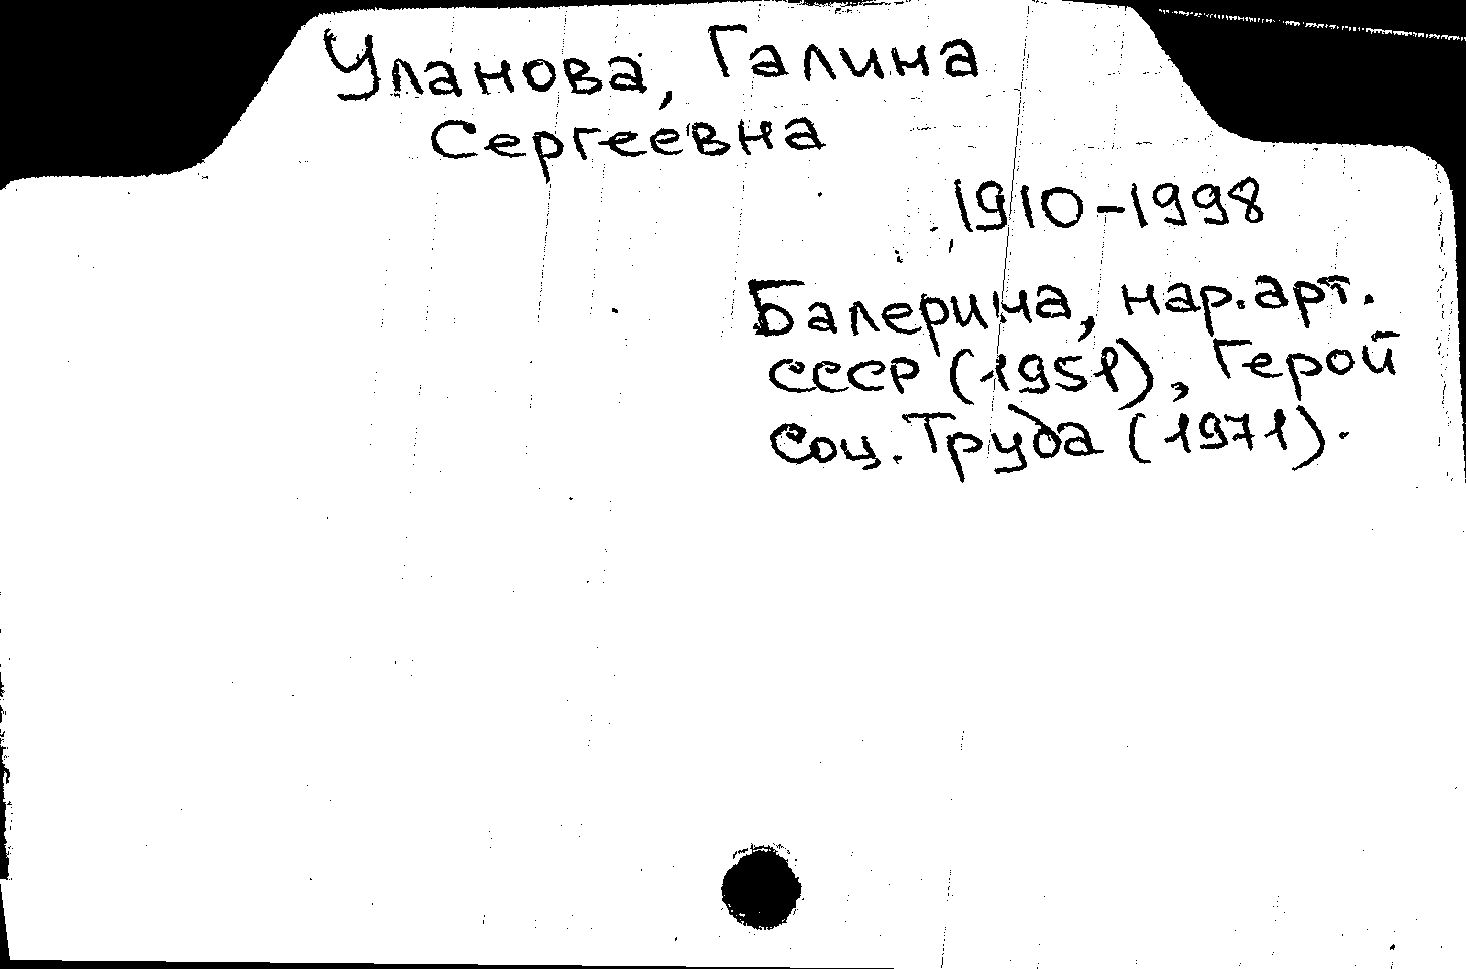 Уланова, Галина
Сергеевна
1910-1998
Балерина, нар.арт.
СССР (1951), Герой
Соц. Труда (1971).